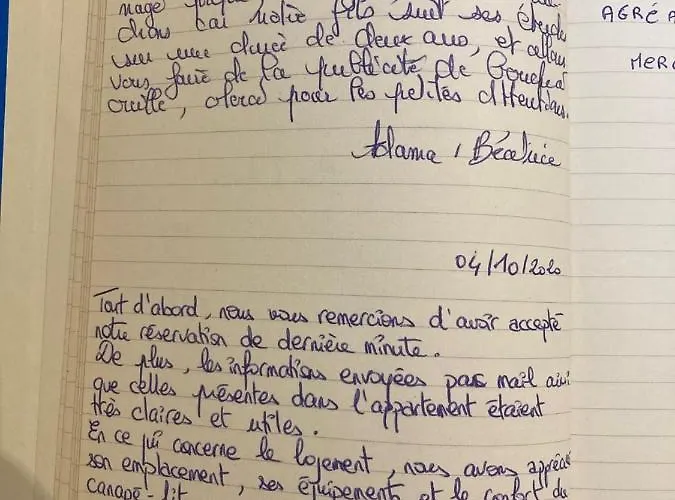 chons car notre fils suit ses études
sur une durée de deux ans, et allons
vous faire de la publicité de bouche à
oreille, merci pour les petites attentions.
Adama / Béatrice
04/10/2020
Tout d'abord, nous vous remercions d'avoir accepté
notre réservation de dernière minute.
De plus, les informations envoyées par mail ainsi
que celles présentes dans l'appartement étaient
très claires et utiles.
En ce qui concerne le logement, nous avons apprécié
son emplacement, ses équipements et le confort du
canapé-lit
AGRÉA
MERC